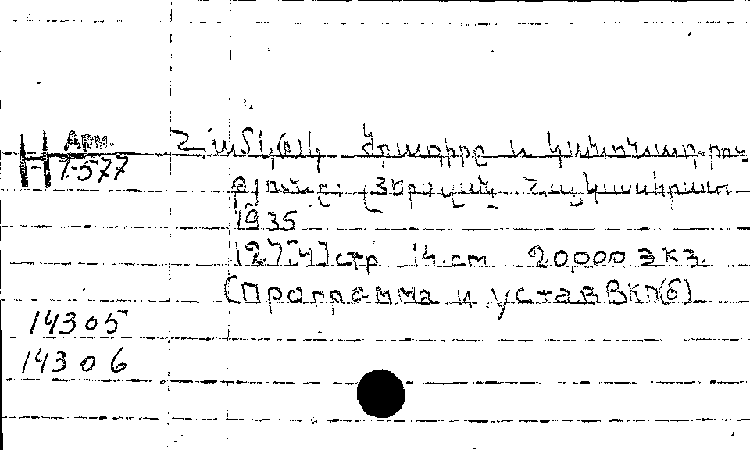 Арм.
Н 7-577
ՀամԿ(բ)Կ ծրագիրը և կանոնադրու
թյունը։ Յերևան Հայկուսհրատ
1935
127[4]стр 14.cm 20,000 экз.
(Программа и устав ВКП(б)
14305
14306